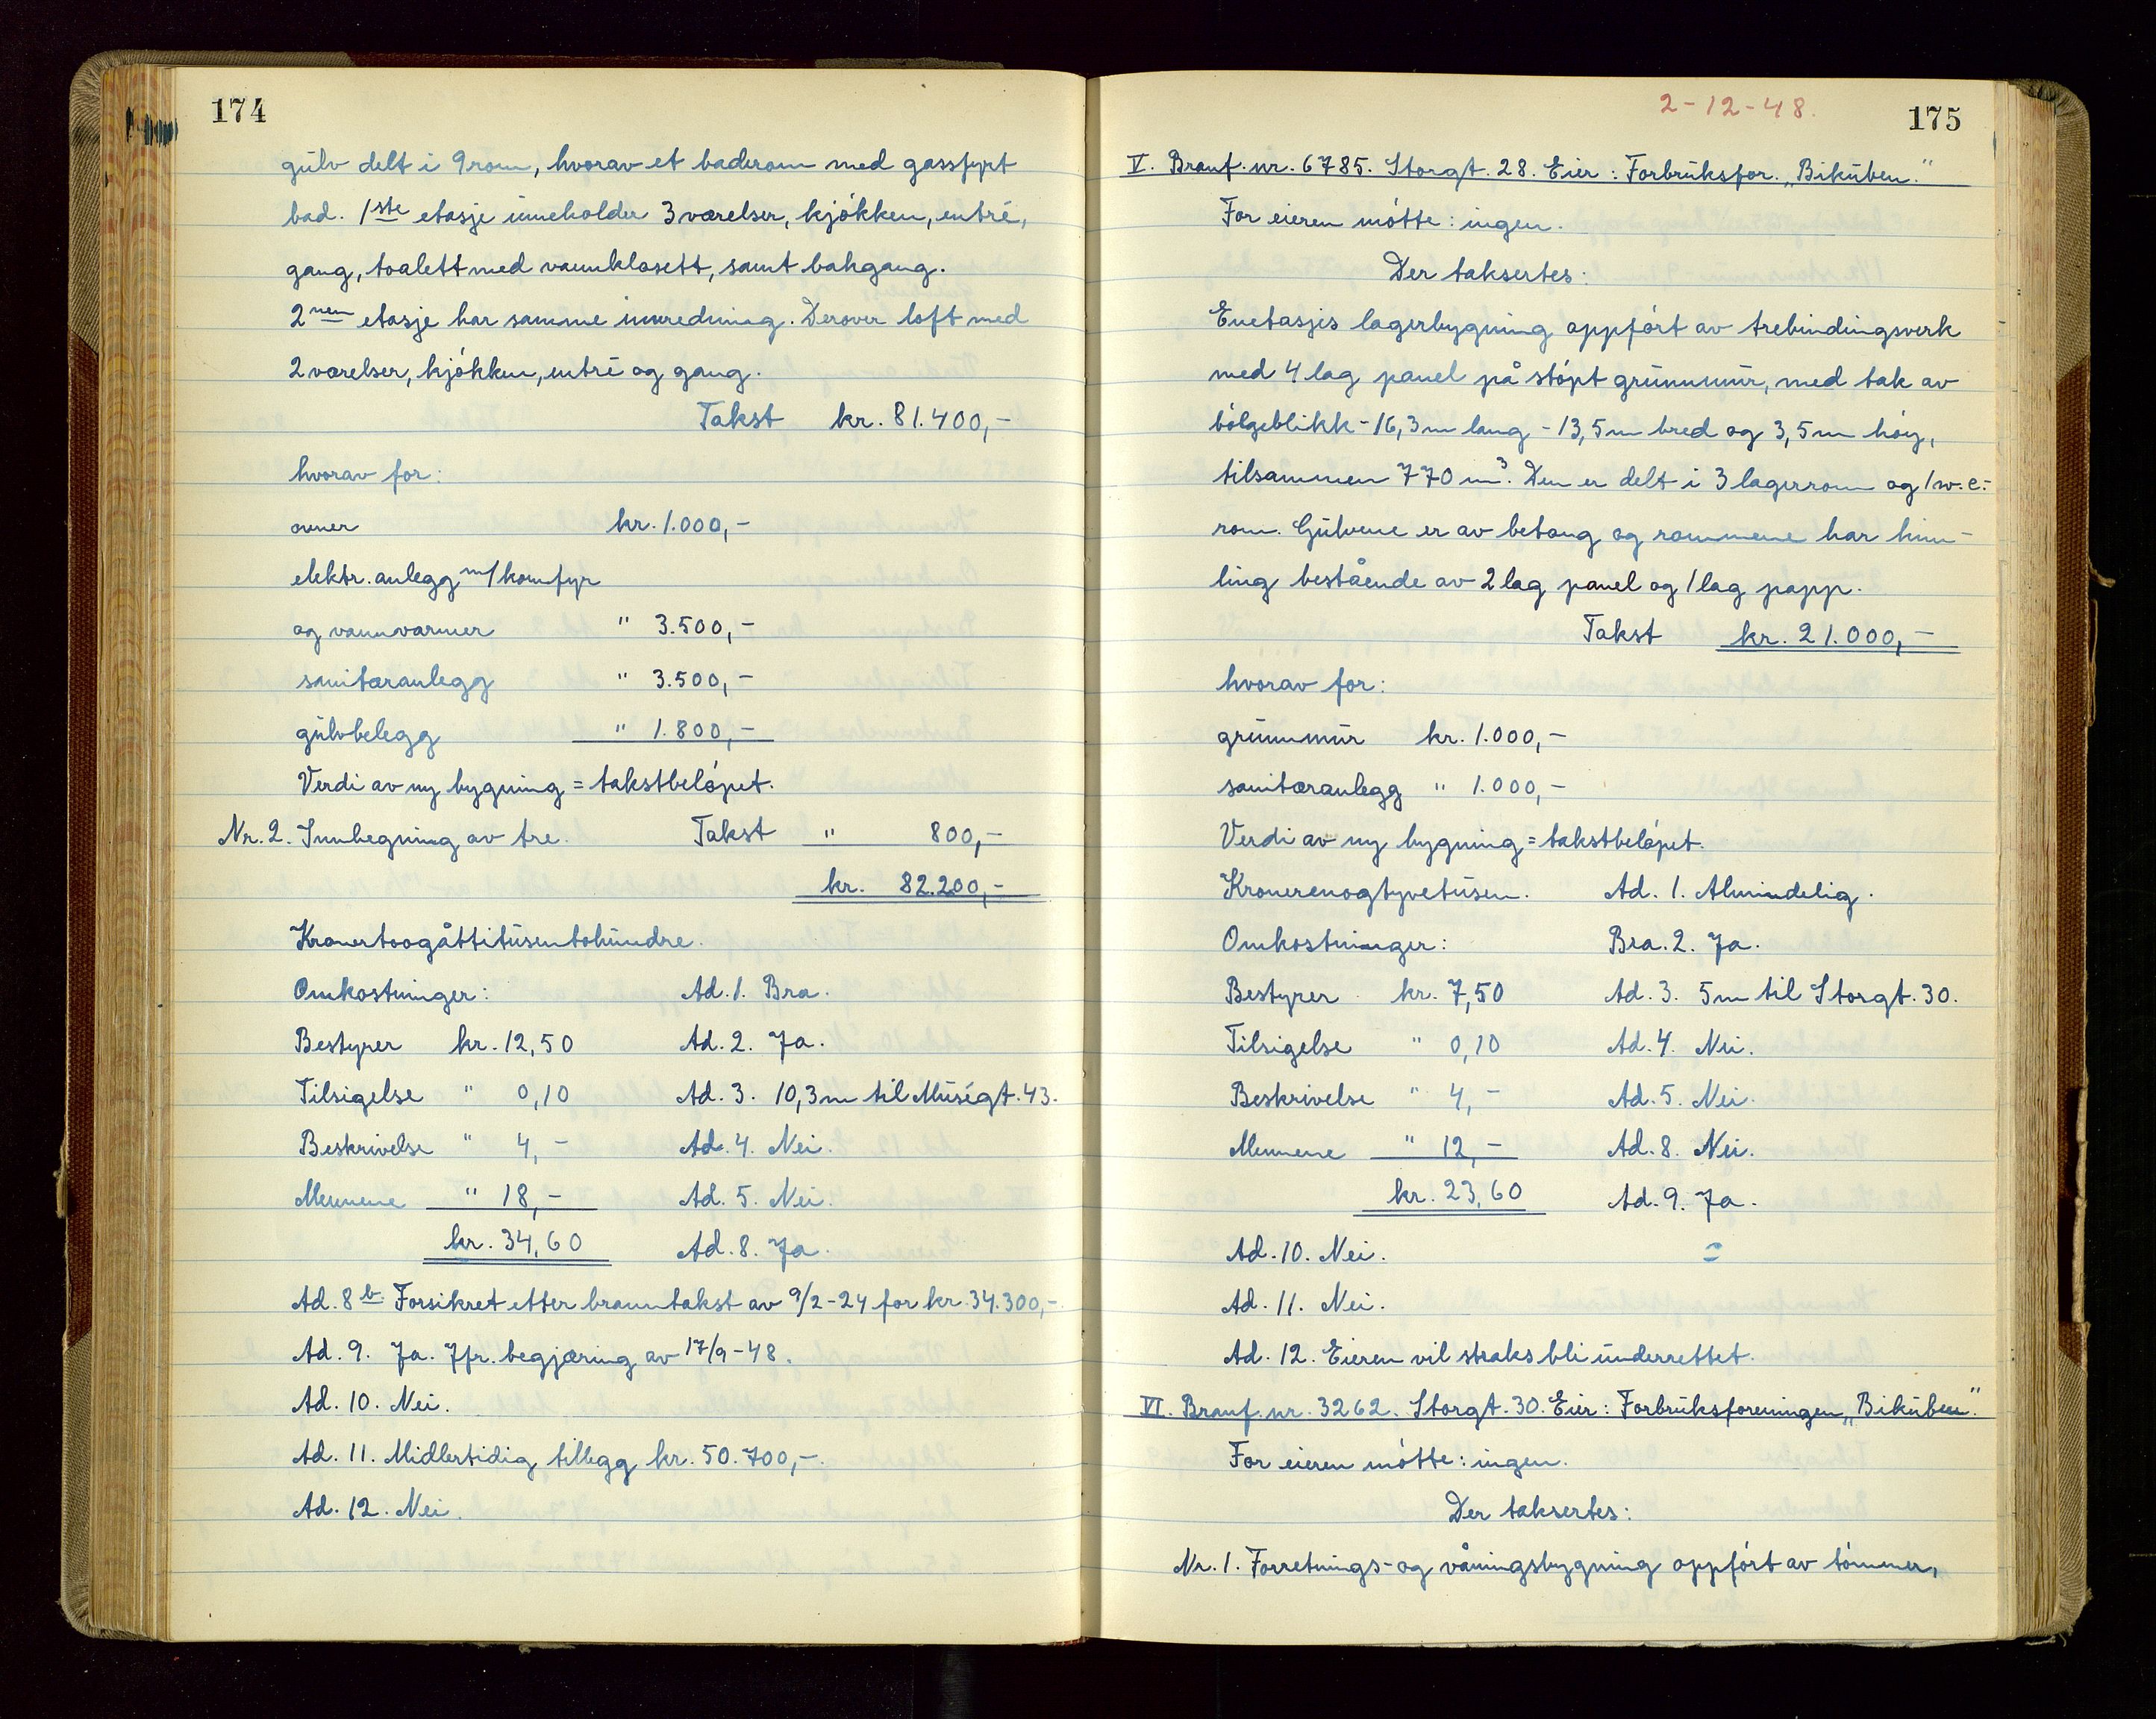 174
gulv delt i 9 rom, hvorav et baderom med gassfyrt
bad. 1ste etasje inneholder 3 værelser, kjøkken, entré,
gang, toalett med vannklosett, samt bakgang.
2nen etasje har samme innredning. Derover loft med
2 værelser, kjøkken, entré og gang.
Takst kr. 81.400,-
hvorav for:
ovner kr. 1.000,-
elektr. anlegg m/komfyr
og vannvarmer " 3.500,-
sanitæranlegg " 3.500,-
gulvbelegg " 1.800,-
Verdi av ny bygning = takstbeløpet.
Nr. 2. Innhegning av tre. Takst " 800,-
kr. 82.200,-
Kronertoogåttitusentohundre.
Omkostninger: Ad. 1. Bra.
Bestyrer kr. 12,50 Ad. 2. Ja.
Tilsigelse " 0,10 Ad. 3. 10,3 m til Muségt. 43.
Beskrivelse " 4,- Ad. 4. Nei.
Mennene " 18,- Ad. 5. Nei.
kr. 34,60 Ad. 8. Ja.
Ad. 8 b. Forsikret etter branntakst av 9/2-24 for kr. 34.300,-
Ad. 9. Ja. Jfr. begjæring av 17/9-48.
Ad. 10. Nei.
Ad. 11. Midlertidig tillegg kr. 50.700,-.
Ad. 12. Nei.
2-12-48.
175
V. Branf. nr. 6785. Storgt. 28. Eier: Forbruksfor. „Bikuben."
For eieren møtte: ingen.
Der taksertes:
Enetasjes lagerbygning oppført av trebindingsverk
med 4 lag panel på støpt grunnmur, med tak av
bølgeblikk - 16,3 m lang - 13,5 m bred og 3,5 m høy,
tilsammen 770 m³. Den er delt i 3 lagerrom og 1 w.c.-
rom. Gulvene er av betong og rommene har him-
ling bestående av 2 lag panel og 1 lag papp.
Takst kr. 21.000,-
hvorav for:
grunnmur kr. 1.000,-
sanitæranlegg " 1.000,-
Verdi av ny bygning = takstbeløpet.
Kronerenogtyvetusen. Ad. 1. Almindelig.
Omkostninger: Bra. 2. Ja.
Bestyrer kr. 7,50 Ad. 3. 5 m til Storgt. 30.
Tilsigelse " 0,10 Ad. 4. Nei.
Beskrivelse " 4,- Ad. 5. Nei.
Mennene " 12,- Ad. 8. Nei.
kr. 23,60 Ad. 9. Ja.
Ad. 10. Nei.
Ad. 11. Nei.
Ad. 12. Eieren vil straks bli underrettet.
VI. Branf. nr. 3262. Storgt. 30. Eier: Forbruksforeningen „Bikuben".
For eieren møtte: ingen.
Der taksertes:
Nr. 1. Forretnings- og våningsbygning oppført av tømmer,